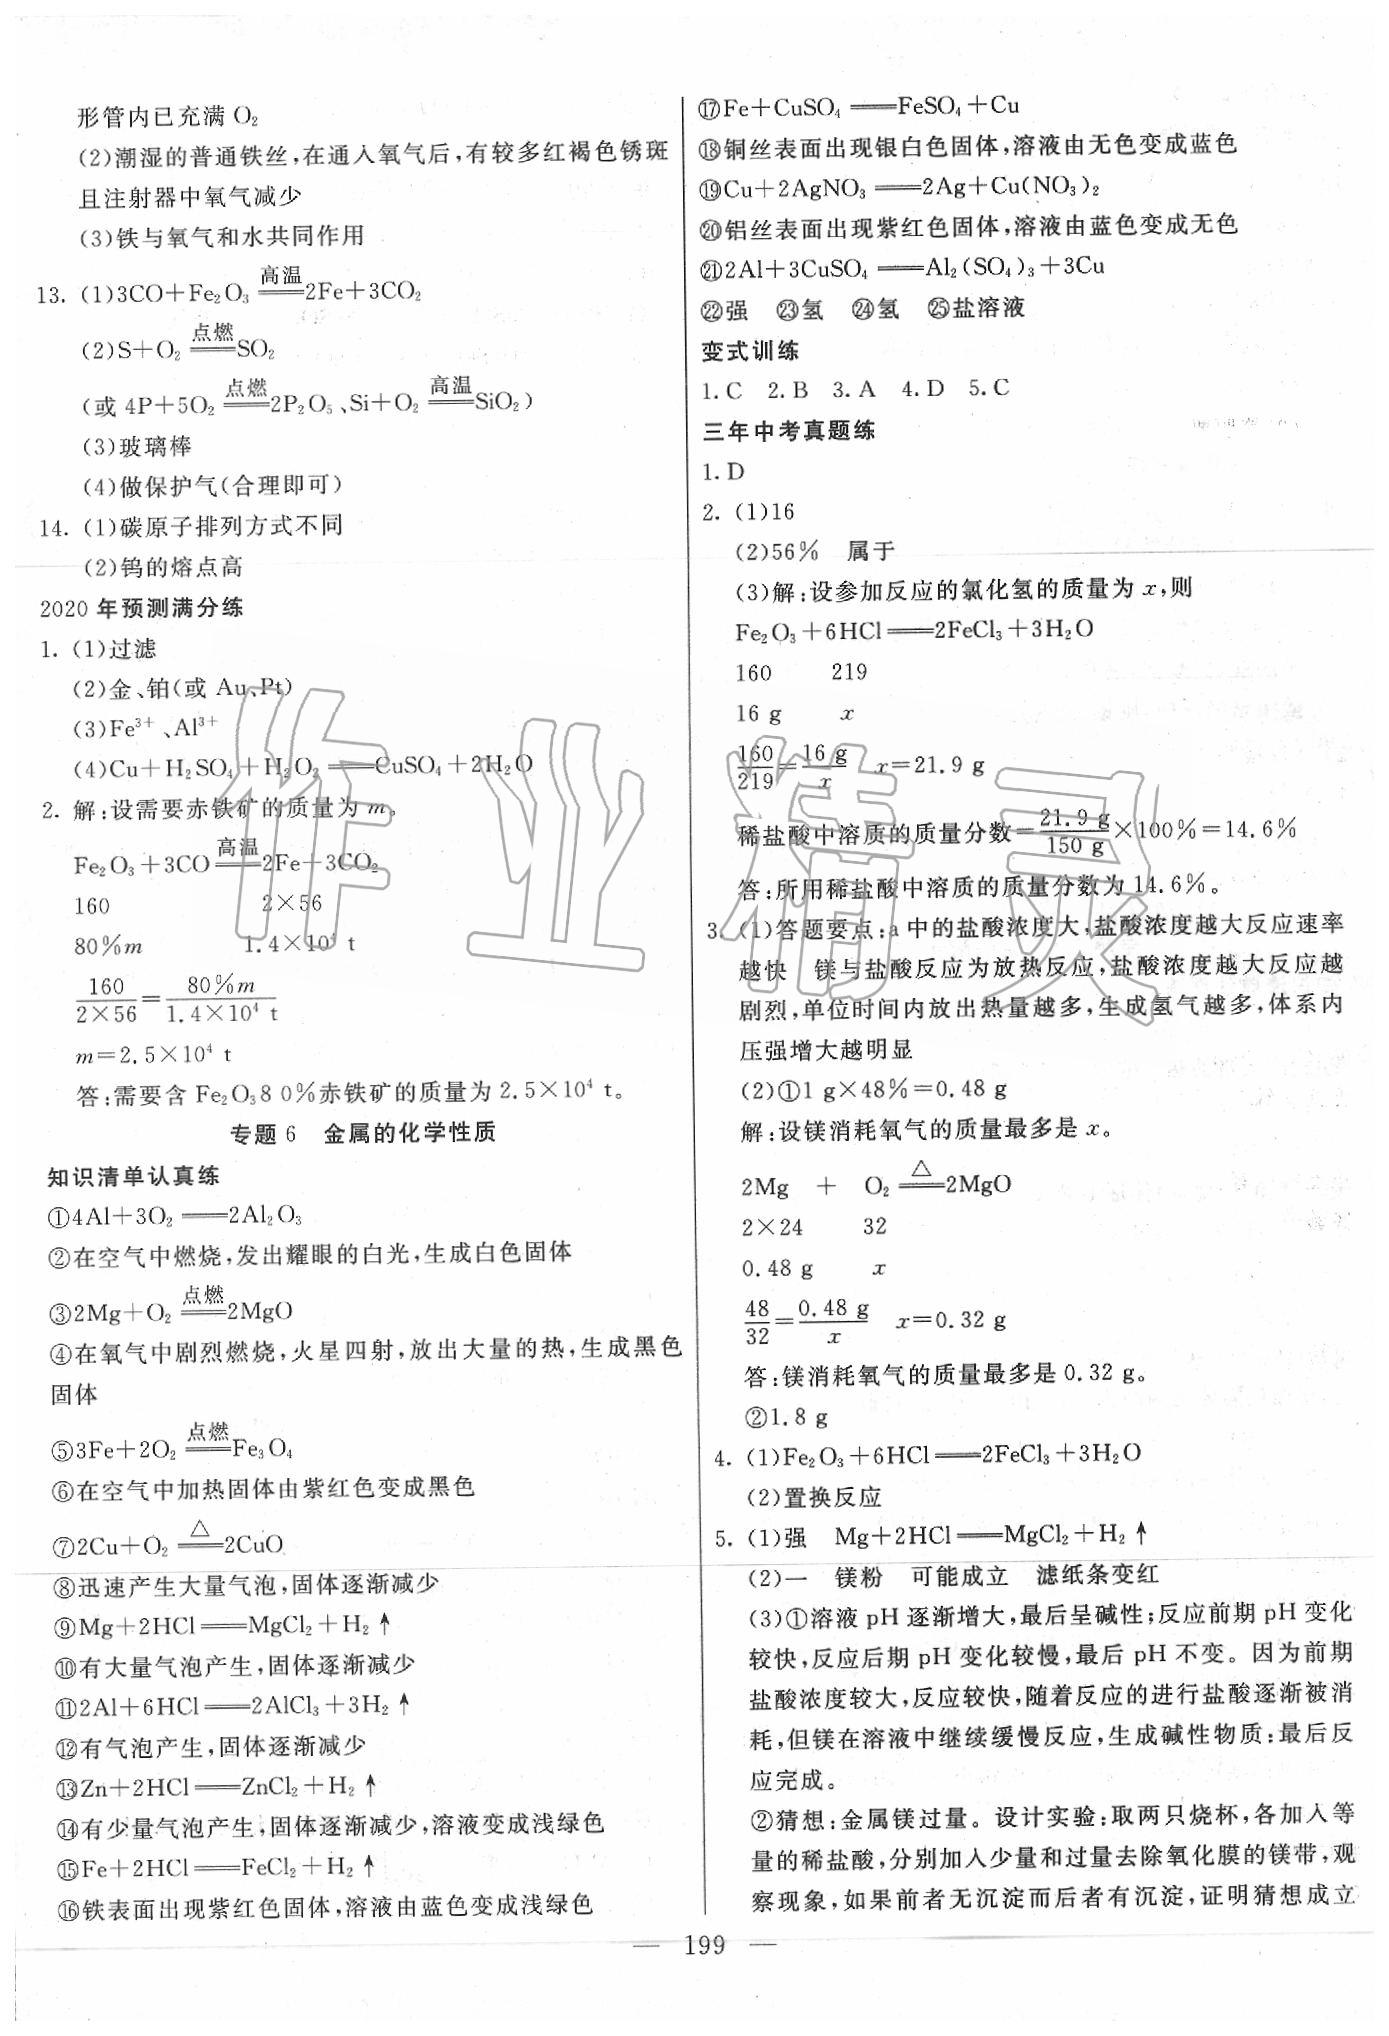 形管内已充满 O₂
(2)潮湿的普通铁丝,在通入氧气后,有较多红褐色锈斑
且注射器中氧气减少
(3)铁与氧气和水共同作用
13. (1)3CO+Fe₂O₃ =高温= 2Fe+3CO₂
(2)S+O₂ =点燃= SO₂
(或 4P+5O₂ =点燃= 2P₂O₅、Si+O₂ =高温= SiO₂)
(3)玻璃棒
(4)做保护气(合理即可)
14. (1)碳原子排列方式不同
(2)钨的熔点高
2020 年预测满分练
1. (1)过滤
(2)金、铂(或 Au、Pt)
(3)Fe³⁺、Al³⁺
(4)Cu+H₂SO₄+H₂O₂ == CuSO₄+2H₂O
2. 解:设需要赤铁矿的质量为 m。
Fe₂O₃+3CO =高温= 2Fe+3CO₂
160 2×56
80%m 1.4×10⁴ t
160/(2×56) = 80%m/(1.4×10⁴ t)
m=2.5×10⁴ t
答:需要含 Fe₂O₃8 0%赤铁矿的质量为 2.5×10⁴ t。
专题 6 金属的化学性质
知识清单认真练
①4Al+3O₂ == 2Al₂O₃
②在空气中燃烧,发出耀眼的白光,生成白色固体
③2Mg+O₂ =点燃= 2MgO
④在氧气中剧烈燃烧,火星四射,放出大量的热,生成黑色
固体
⑤3Fe+2O₂ =点燃= Fe₃O₄
⑥在空气中加热固体由紫红色变成黑色
⑦2Cu+O₂ =△= 2CuO
⑧迅速产生大量气泡,固体逐渐减少
⑨Mg+2HCl == MgCl₂+H₂↑
⑩有大量气泡产生,固体逐渐减少
⑪2Al+6HCl == 2AlCl₃+3H₂↑
⑫有气泡产生,固体逐渐减少
⑬Zn+2HCl == ZnCl₂+H₂↑
⑭有少量气泡产生,固体逐渐减少,溶液变成浅绿色
⑮Fe+2HCl == FeCl₂+H₂↑
⑯铁表面出现紫红色固体,溶液由蓝色变成浅绿色
⑰Fe+CuSO₄ == FeSO₄+Cu
⑱铜丝表面出现银白色固体,溶液由无色变成蓝色
⑲Cu+2AgNO₃ == 2Ag+Cu(NO₃)₂
⑳铝丝表面出现紫红色固体,溶液由蓝色变成无色
㉑2Al+3CuSO₄ == Al₂(SO₄)₃+3Cu
㉒强 ㉓氢 ㉔氢 ㉕盐溶液
变式训练
1. C 2. B 3. A 4. D 5. C
三年中考真题练
1. D
2. (1)16
(2)56% 属于
(3)解:设参加反应的氯化氢的质量为 x,则
Fe₂O₃+6HCl == 2FeCl₃+3H₂O
160 219
16 g x
160/219 = 16 g/x x=21.9 g
稀盐酸中溶质的质量分数= 21.9 g/150 g ×100%=14.6%
答:所用稀盐酸中溶质的质量分数为 14.6%。
3. (1)答题要点:a 中的盐酸浓度大,盐酸浓度越大反应速率
越快 镁与盐酸反应为放热反应,盐酸浓度越大反应越
剧烈,单位时间内放出热量越多,生成氢气越多,体系内
压强增大越明显
(2)①1 g×48%=0.48 g
解:设镁消耗氧气的质量最多是 x。
2Mg + O₂ =△= 2MgO
2×24 32
0.48 g x
48/32 = 0.48 g/x x=0.32 g
答:镁消耗氧气的质量最多是 0.32 g。
②1.8 g
4. (1)Fe₂O₃+6HCl == 2FeCl₃+3H₂O
(2)置换反应
5. (1)强 Mg+2HCl == MgCl₂+H₂↑
(2)一 镁粉 可能成立 滤纸条变红
(3)①溶液 pH 逐渐增大,最后呈碱性;反应前期 pH 变化
较快,反应后期 pH 变化较慢,最后 pH 不变。因为前期
盐酸浓度较大,反应较快,随着反应的进行盐酸逐渐被消
耗,但镁在溶液中继续缓慢反应,生成碱性物质;最后反
应完成。
②猜想:金属镁过量。设计实验:取两只烧杯,各加入等
量的稀盐酸,分别加入少量和过量去除氧化膜的镁带,观
察现象,如果前者无沉淀而后者有沉淀,证明猜想成立
— 199 —
作业精灵